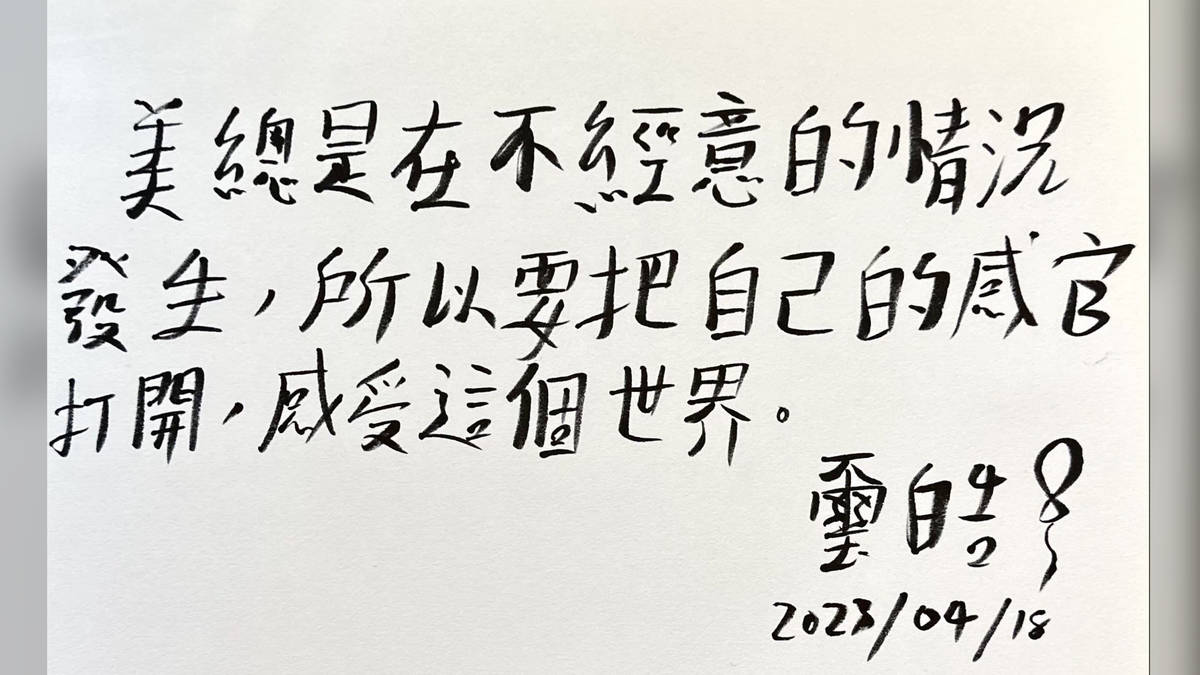 美總是在不經意的情況
發生，所以要把自己的感官
打開，感受這個世界。
璽皓
2023/04/18